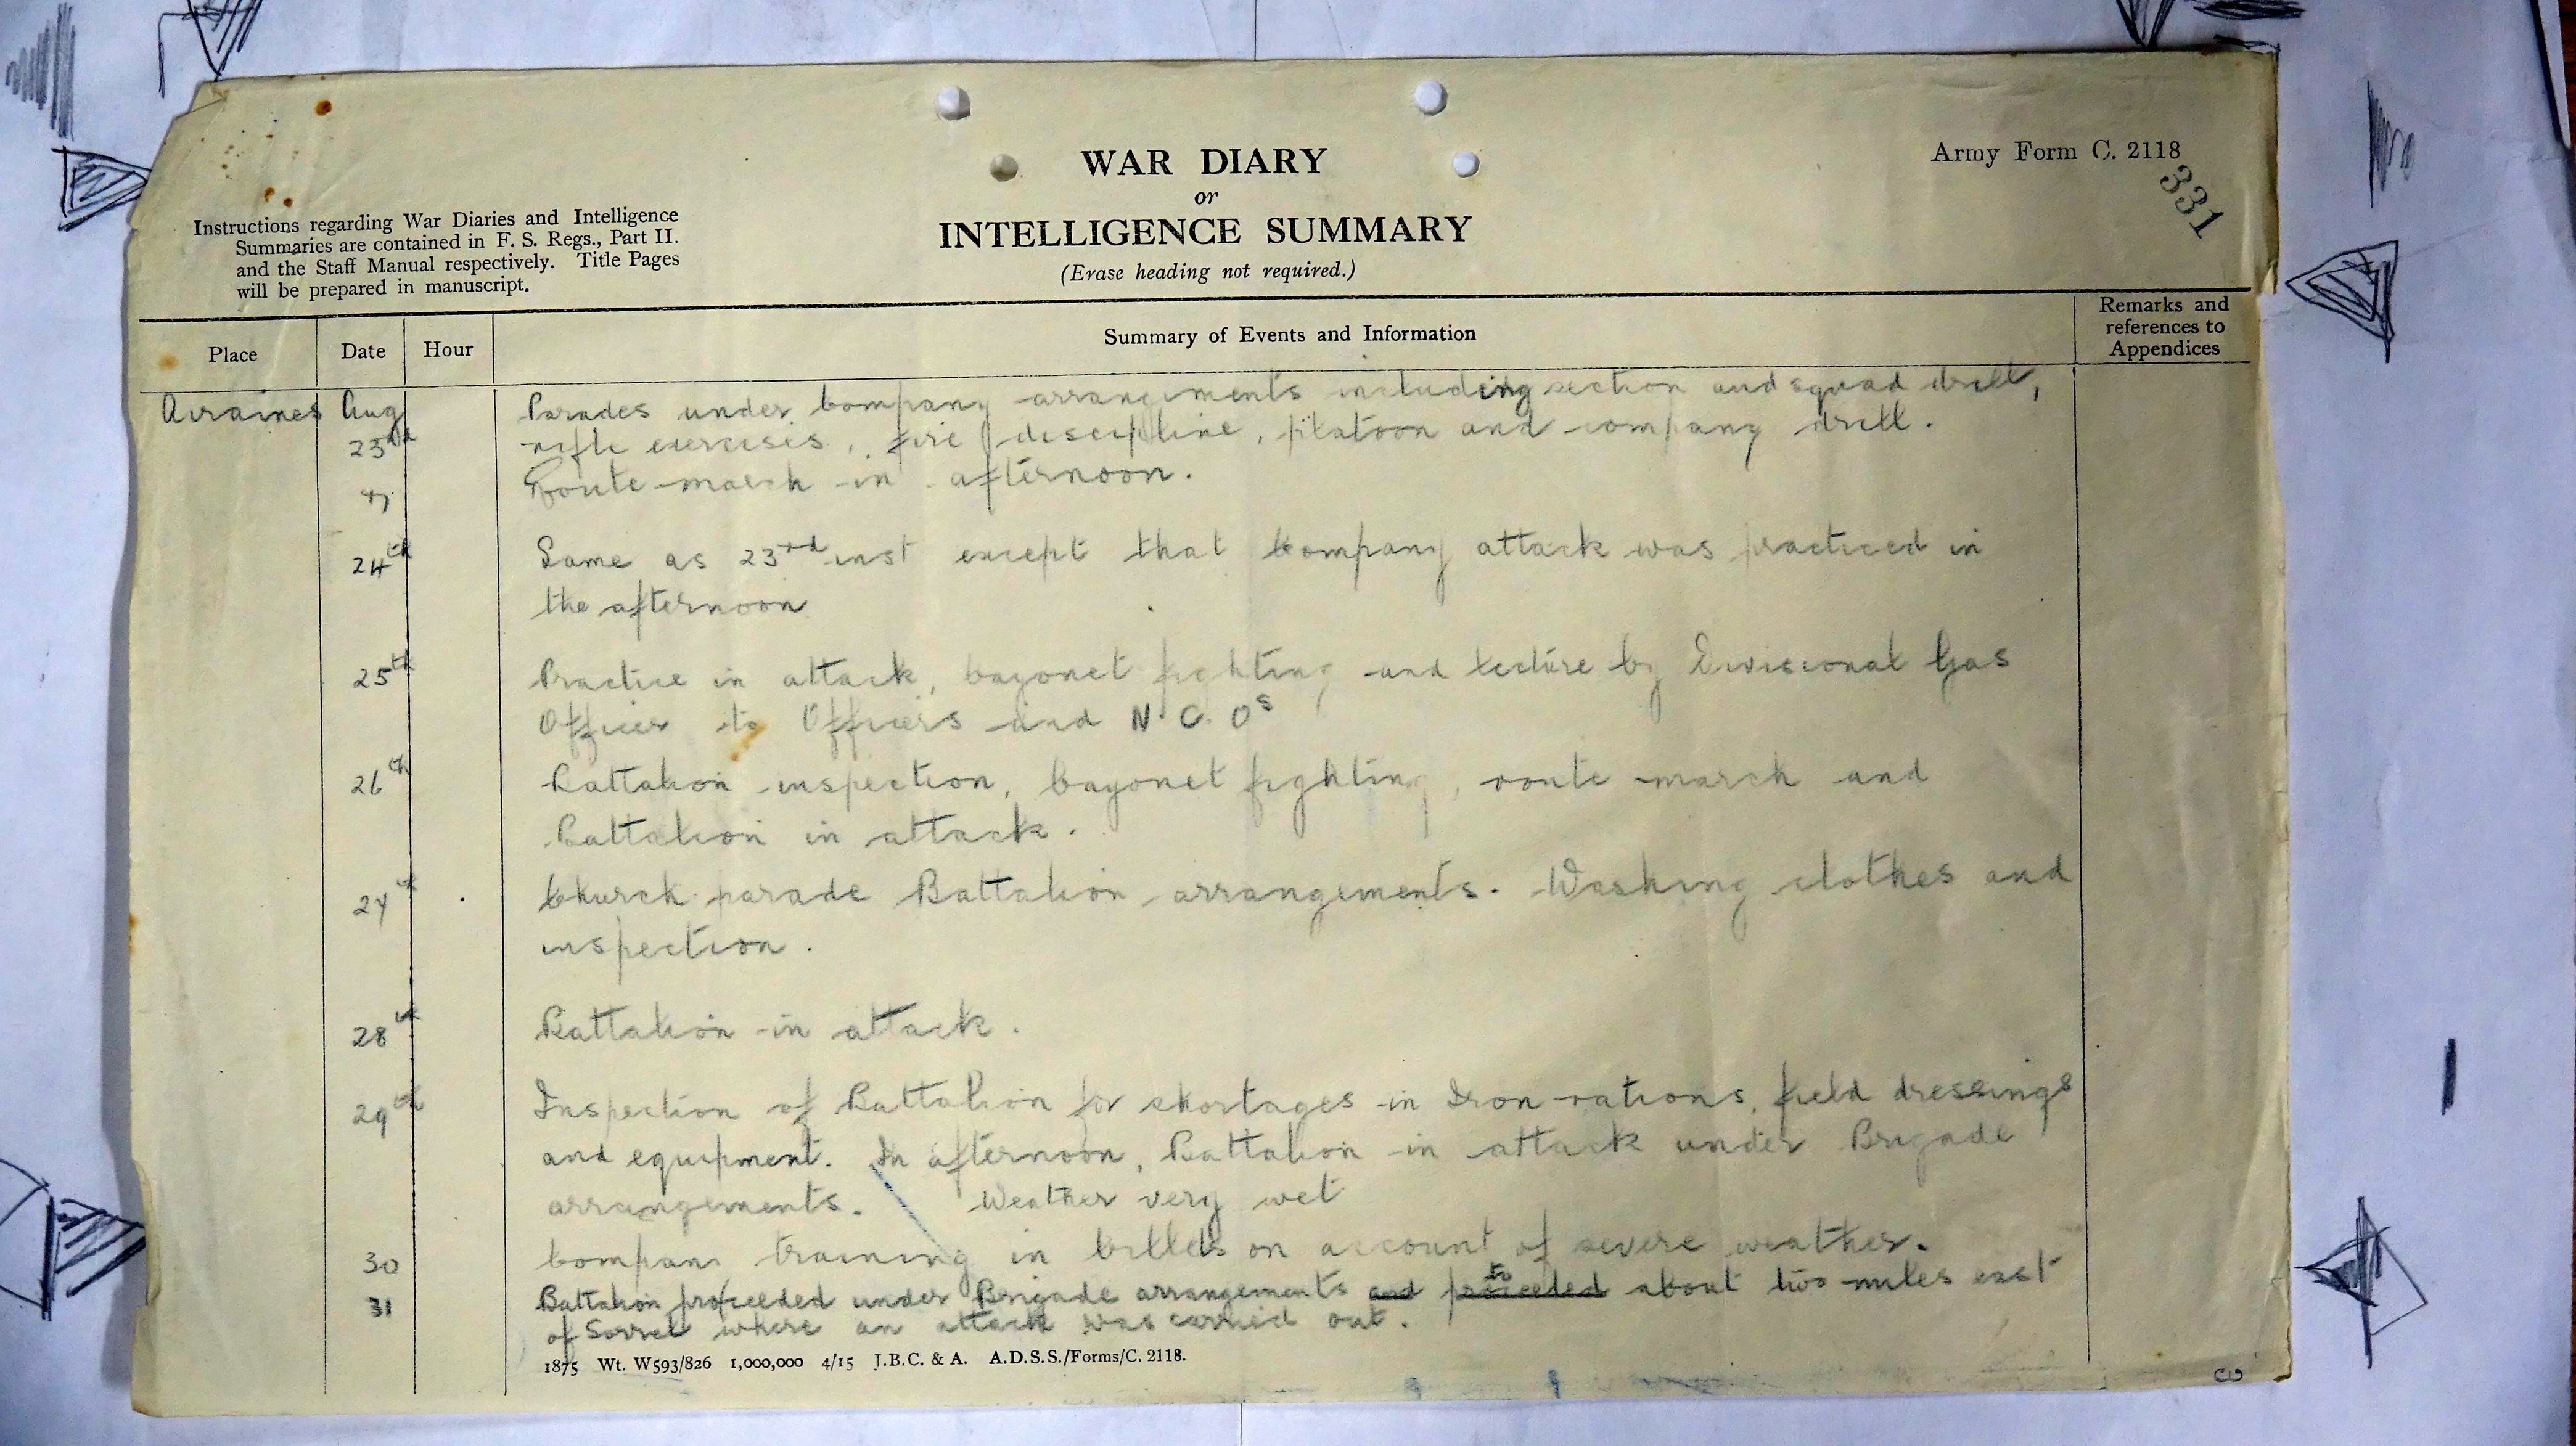 Army Form C. 2118
331
WAR DIARY
or
INTELLIGENCE SUMMARY
(Erase heading not required.)
Instructions regarding War Diaries and Intelligence
Summaries are contained in F. S. Regs., Part II.
and the Staff Manual respectively. Title Pages
will be prepared in manuscript.
Place Date Hour Summary of Events and Information Remarks and
references to
Appendices
Airaines Aug Parades under Company arrangements including section and squad drill,
23rd rifle exercises, fire discipline, platoon and company drill.
Route march in afternoon.
24th Same as 23rd inst except that Company attack was practiced in
the afternoon
25th Practice in attack, bayonet fighting and lecture by Divisional Gas
Officer to Officers and N.C.Os
26th Battalion inspection, bayonet fighting, route march and
Battalion in attack.
27th Church parade Battalion arrangements. Washing clothes and
inspection.
28th Battalion in attack.
29th Inspection of Battalion for shortages in Iron rations, field dressings
and equipment. In afternoon, Battalion in attack under Brigade
arrangements. Weather very wet
30 Company training in billets on account of severe weather.
31 Battalion proceeded under Brigade arrangements and proceeded to about two miles east
of Sorrel where an attack was carried out.
1875 Wt. W593/826 1,000,000 4/15 J.B.C. & A. A.D.S.S./Forms/C. 2118.